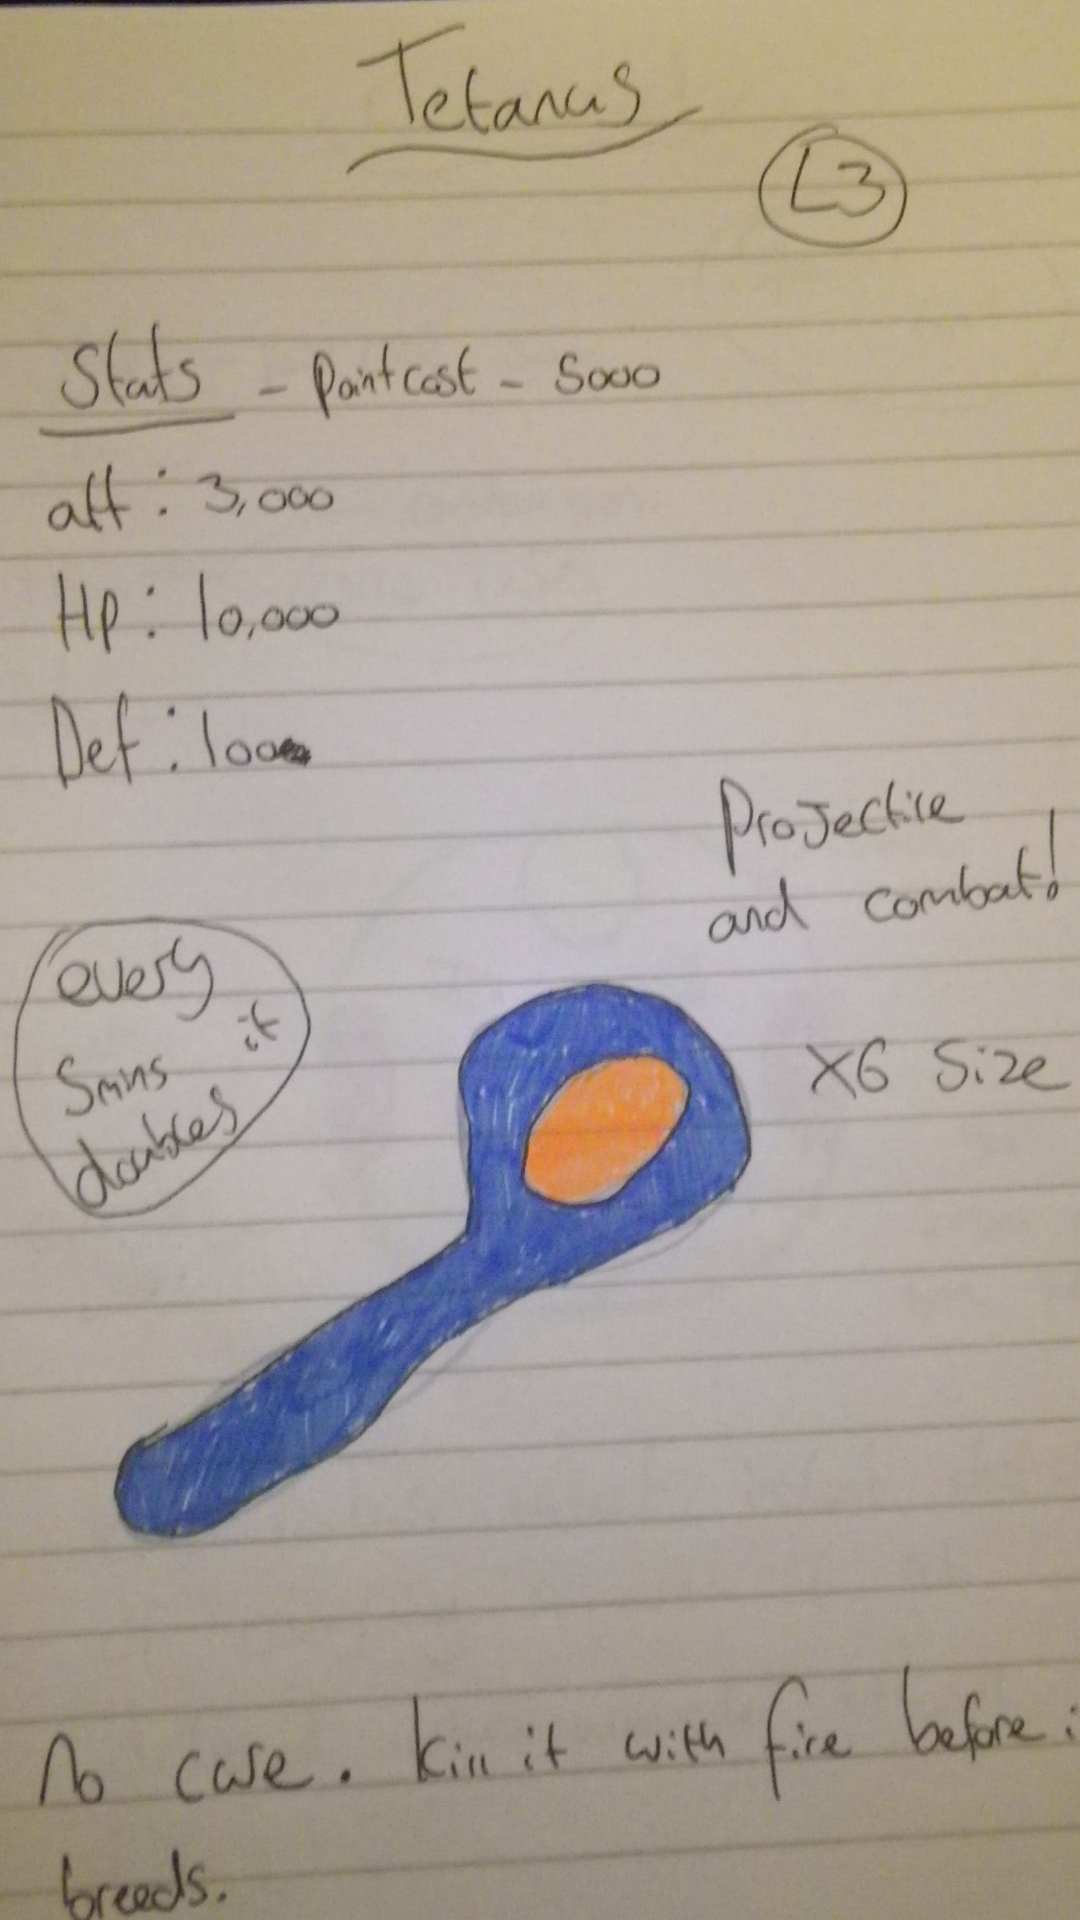 Tetanus
L3
Stats - Point cost - 5000
att : 3,000
Hp : 10,000
Def : 100
Projectile
and combat!
every
5mins it
doubles
X6 Size
No cure. Kill it with fire before i
breeds.